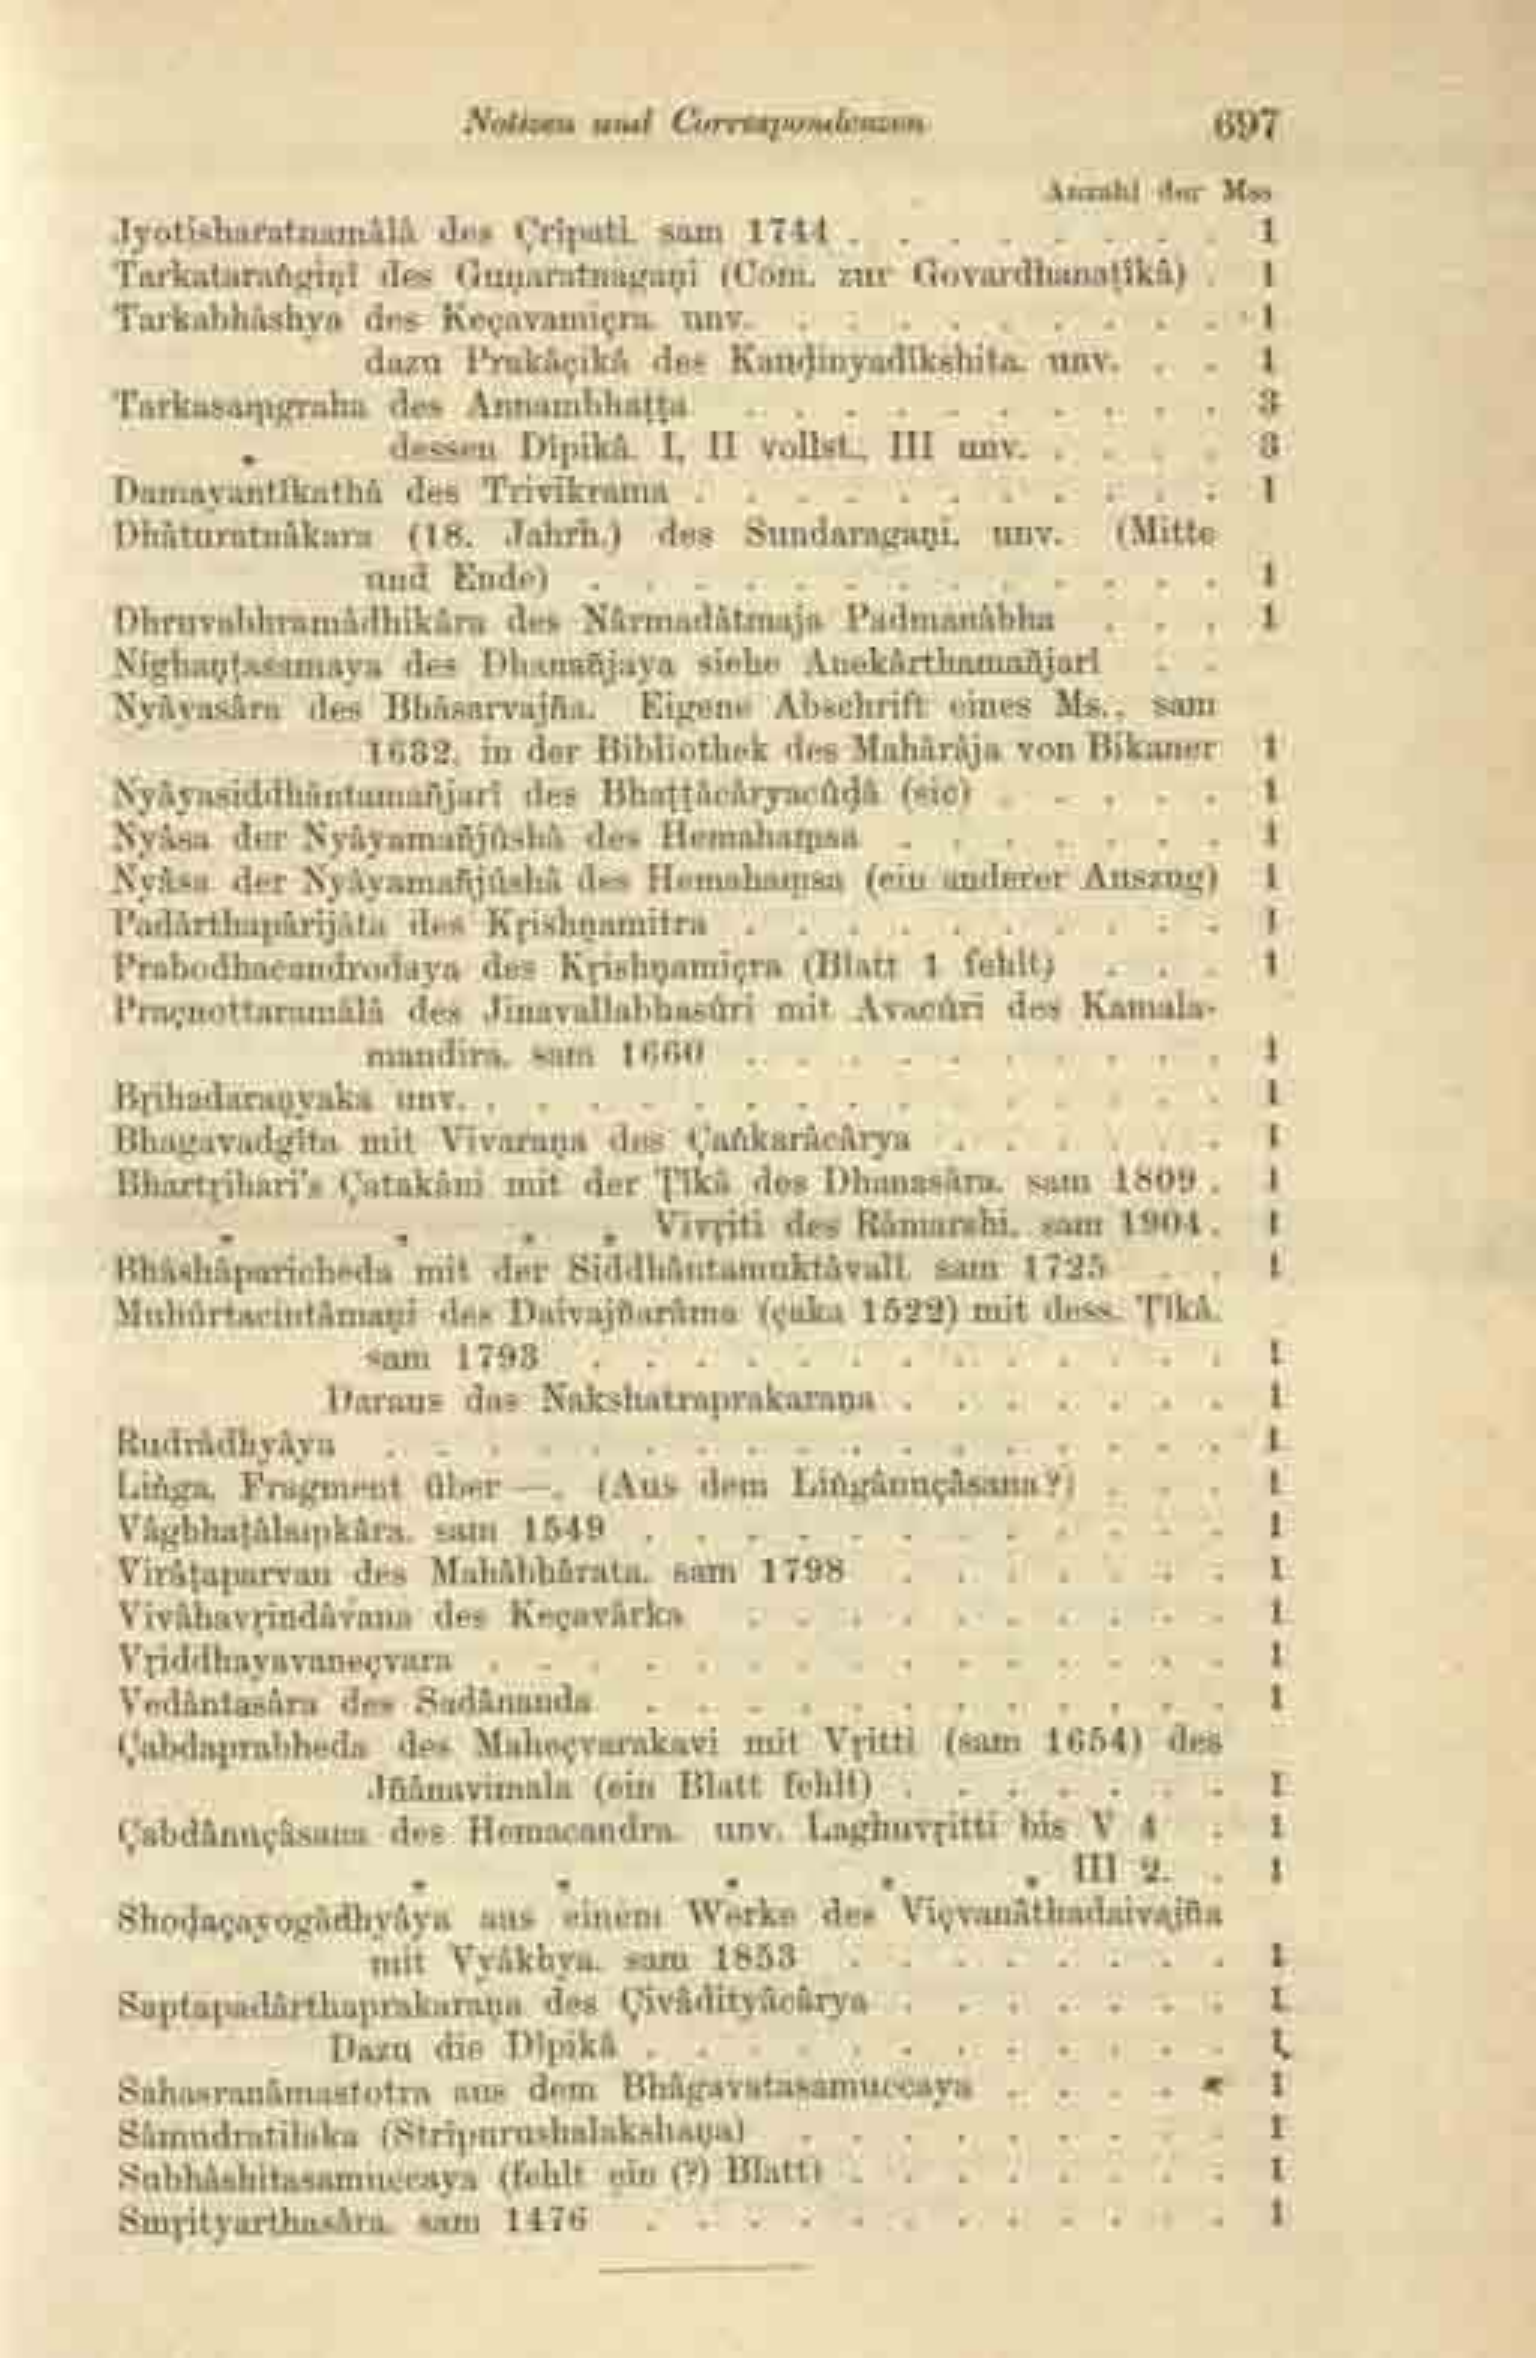 Notizen und Correspondenzen 697
Anzahl der Mss
Jyotisharatnamâlâ des Çrîpati. sam 1744 . . . . . . . . 1
Tarkataraṅgiṇî des Guṇaratnagaṇi (Com. zur Govardhanaṭîkâ) . 1
Tarkabhâshya des Keçavamiçra. unv. . . . . . . . . . 1
dazu Prakâçikâ des Kauṇḍinyadîkshita. unv. . . 1
Tarkasaṃgraha des Annambhaṭṭa . . . . . . . . . . 3
„ dessen Dîpikâ. I, II vollst., III unv. . . . . 3
Damayantîkathâ des Trivikrama . . . . . . . . . . . 1
Dhâturatnâkara (18. Jahrh.) des Sundaragaṇi. unv. (Mitte
und Ende) . . . . . . . . . . . . . 1
Dhruvabhramâdhikâra des Nârmadâtmaja Padmanâbha . . . 1
Nighaṇṭasamaya des Dhanañjaya siehe Anekârthamañjarî . .
Nyâyasâra des Bhâsarvajña. Eigene Abschrift eines Ms., sam
1632. in der Bibliothek des Mahârâja von Bikaner 1
Nyâyasiddhântamañjarî des Bhaṭṭâcâryacûḍâ (sic) . . . . . 1
Nyâsa der Nyâyamañjûshâ des Hemahaṃsa . . . . . . . 1
Nyâsa der Nyâyamañjûshâ des Hemahaṃsa (ein anderer Auszug) 1
Padârthapârijâta des Kṛishṇamitra . . . . . . . . . . 1
Prabodhacandrodaya des Kṛishṇamiçra (Blatt 1 fehlt) . . . 1
Praçnottaramâlâ des Jinavallabhasûri mit Avacûri des Kamala-
mandira. sam 1660 . . . . . . . . . . 1
Bṛihadaraṇyaka unv. . . . . . . . . . . . . . . . 1
Bhagavadgîta mit Vivaraṇa des Çaṅkarâcârya . . . . . . 1
Bhartṛihari's Çatakâni mit der Ṭîkâ des Dhanasâra. sam 1809 . 1
„ „ „ „ Vivṛiti des Râmarshi. sam 1904 . 1
Bhâshâparicheda mit der Siddhântamuktâvalî. sam 1725 . . 1
Muhûrtacintâmaṇi des Daivajñarâma (çaka 1522) mit dess. Ṭîkâ.
sam 1793 . . . . . . . . . . . . . 1
Daraus das Nakshatraprakaraṇa . . . . . . . 1
Rudrâdhyâya . . . . . . . . . . . . . . . . . 1
Liṅga. Fragment über —. (Aus dem Liṅgânuçâsana?) . . . 1
Vâgbhaṭâlaṃkâra. sam 1549 . . . . . . . . . . . . 1
Virâṭaparvan des Mahâbhârata. sam 1798 . . . . . . . 1
Vivâhavṛindâvana des Keçavârka . . . . . . . . . . 1
Vṛiddhayavaneçvara . . . . . . . . . . . . . . . 1
Vedântasâra des Sadânanda . . . . . . . . . . . . 1
Çabdaprabheda des Maheçvarakavi mit Vṛitti (sam 1654) des
Jñânavimala (ein Blatt fehlt) . . . . . . . 1
Çabdânuçâsana des Hemacandra. unv. Laghuvṛitti bis V 4 . 1
„ „ „ „ „ III 2. . 1
Shoḍaçayogâdhyâya aus einem Werke des Viçvanâthadaivajña
mit Vyâkhya. sam 1853 . . . . . . . . 1
Saptapadârthaprakaraṇa des Çivâdityâcârya . . . . . . . 1
Dazu die Dîpikâ . . . . . . . . . . . . 1
Sahasranâmastotra aus dem Bhâgavatasamuccaya . . . . 1
Sâmudratilaka (Strîpurushalakshaṇa) . . . . . . . . . 1
Subhâshitasamuccaya (fehlt ein (?) Blatt) . . . . . . . . 1
Smṛityarthasâra. sam 1476 . . . . . . . . . . . . 1